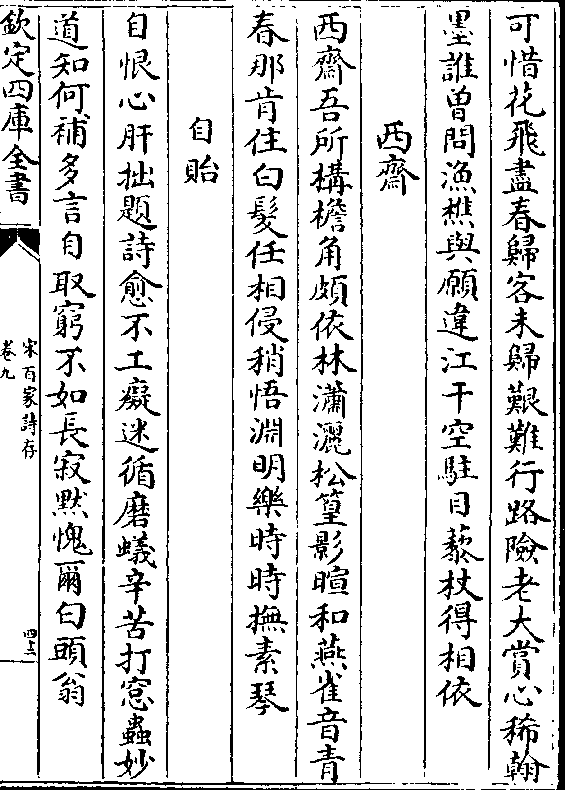 可惜花飛盡春歸客未歸艱難行路險老大賞心稀翰
墨誰曽問漁樵與願違江干空駐目藜杖得相依
西齋
西齋吾所構檐角頗依林瀟灑松篁影暄和燕雀音青
春那肯住白髮任相侵稍悟淵明樂時時撫素琴
自貽
自恨心肝拙題詩愈不工癡迷循磨蟻辛苦打窻蟲妙
道知何補多言自取窮不如長寂黙愧爾白頭翁
欽定四庫全書
宋百家詩存
卷九
四十三